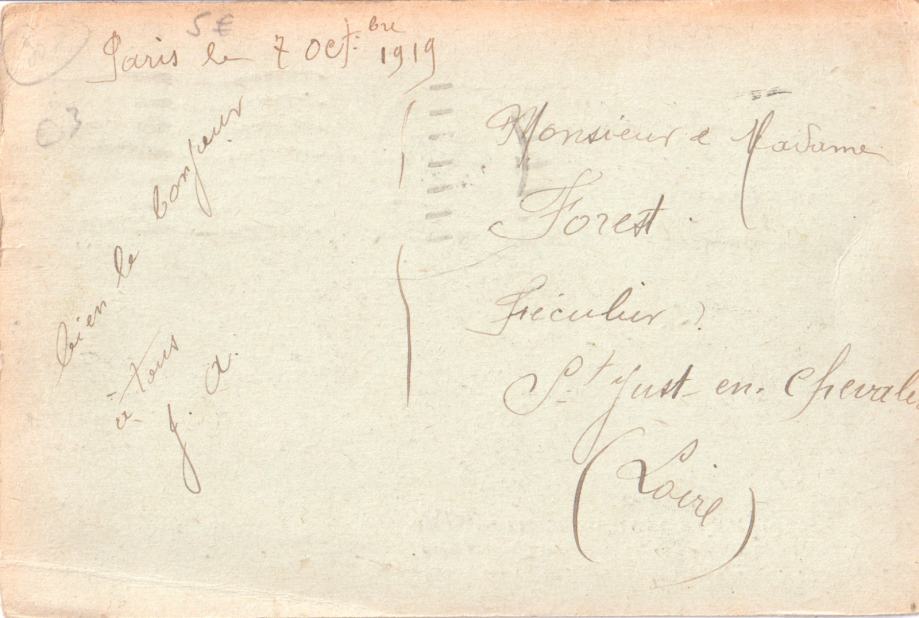 5€
Paris le 7 Octbre 1919
03
bien le bonjour
à tous
J. A.
Monsieur & Madame
Forest.
Féculier
St Just-en-Chevale
(Loire)